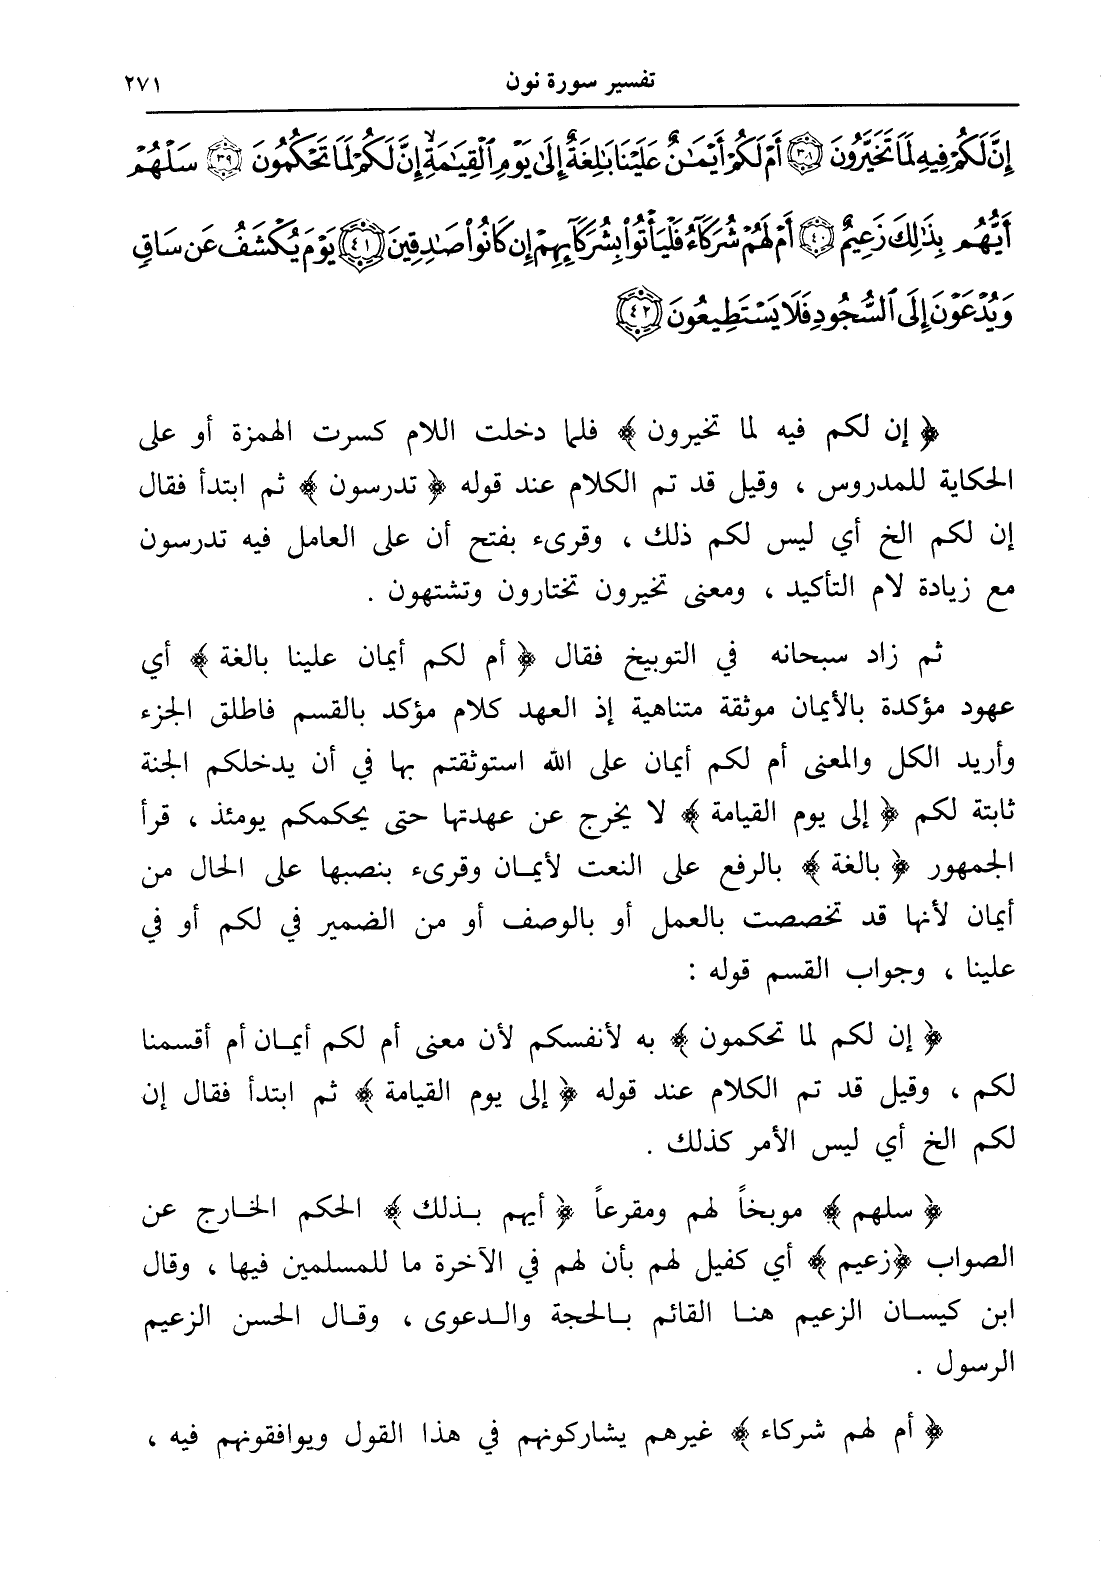 تفسير سورة نون ٢٧١
إِنَّ لَكُمْ فِيهِ لَمَا تَخَيَّرُونَ ٣٨ أَمْ لَكُمْ أَيْمَٰنٌ عَلَيْنَا بَٰلِغَةٌ إِلَىٰ يَوْمِ ٱلْقِيَٰمَةِ إِنَّ لَكُمْ لَمَا تَحْكُمُونَ ٣٩ سَلْهُمْ
أَيُّهُم بِذَٰلِكَ زَعِيمٌ ٤٠ أَمْ لَهُمْ شُرَكَآءُ فَلْيَأْتُوا۟ بِشُرَكَآئِهِمْ إِن كَانُوا۟ صَٰدِقِينَ ٤١ يَوْمَ يُكْشَفُ عَن سَاقٍ
وَيُدْعَوْنَ إِلَى ٱلسُّجُودِ فَلَا يَسْتَطِيعُونَ ٤٢
﴿ إن لكم فيه لما تخيرون ﴾ فلما دخلت اللام كسرت الهمزة أو على
الحكاية للمدروس ، وقيل قد تم الكلام عند قوله ﴿ تدرسون ﴾ ثم ابتدأ فقال
إن لكم الخ أي ليس لكم ذلك ، وقرىء بفتح أن على العامل فيه تدرسون
مع زيادة لام التأكيد ، ومعنى تخيرون تختارون وتشتهون .
ثم زاد سبحانه في التوبيخ فقال ﴿ أم لكم أيمان علينا بالغة ﴾ أي
عهود مؤكدة بالأيمان موثقة متناهية إذ العهد كلام مؤكد بالقسم فاطلق الجزء
وأريد الكل والمعنى أم لكم أيمان على الله استوثقتم بها في أن يدخلكم الجنة
ثابتة لكم ﴿ إلى يوم القيامة ﴾ لا يخرج عن عهدتها حتى يحكمكم يومئذ ، قرأ
الجمهور ﴿ بالغة ﴾ بالرفع على النعت لأيمـان وقرىء بنصبها على الحال من
أيمان لأنها قد تخصصت بالعمل أو بالوصف أو من الضمير في لكم أو في
علينا ، وجواب القسم قوله :
﴿ إن لكم لما تحكمون ﴾ به لأنفسكم لأن معنى أم لكم أيمـان أم أقسمنا
لكم ، وقيل قد تم الكلام عند قوله ﴿ إلى يوم القيامة ﴾ ثم ابتدأ فقال إن
لكم الخ أي ليس الأمر كذلك .
﴿ سلهم ﴾ موبخاً لهم ومقرعاً ﴿ أيهم بـذلك ﴾ الحكم الخـارج عن
الصواب ﴿ زعيم ﴾ أي كفيل لهم بأن لهم في الآخرة ما للمسلمين فيها ، وقال
ابن كيسـان الزعيم هنـا القائم بـالحجة والـدعوى ، وقـال الحسن الزعيم
الرسول .
﴿ أم لهم شركاء ﴾ غيرهم يشاركونهم في هذا القول ويوافقونهم فيه ،